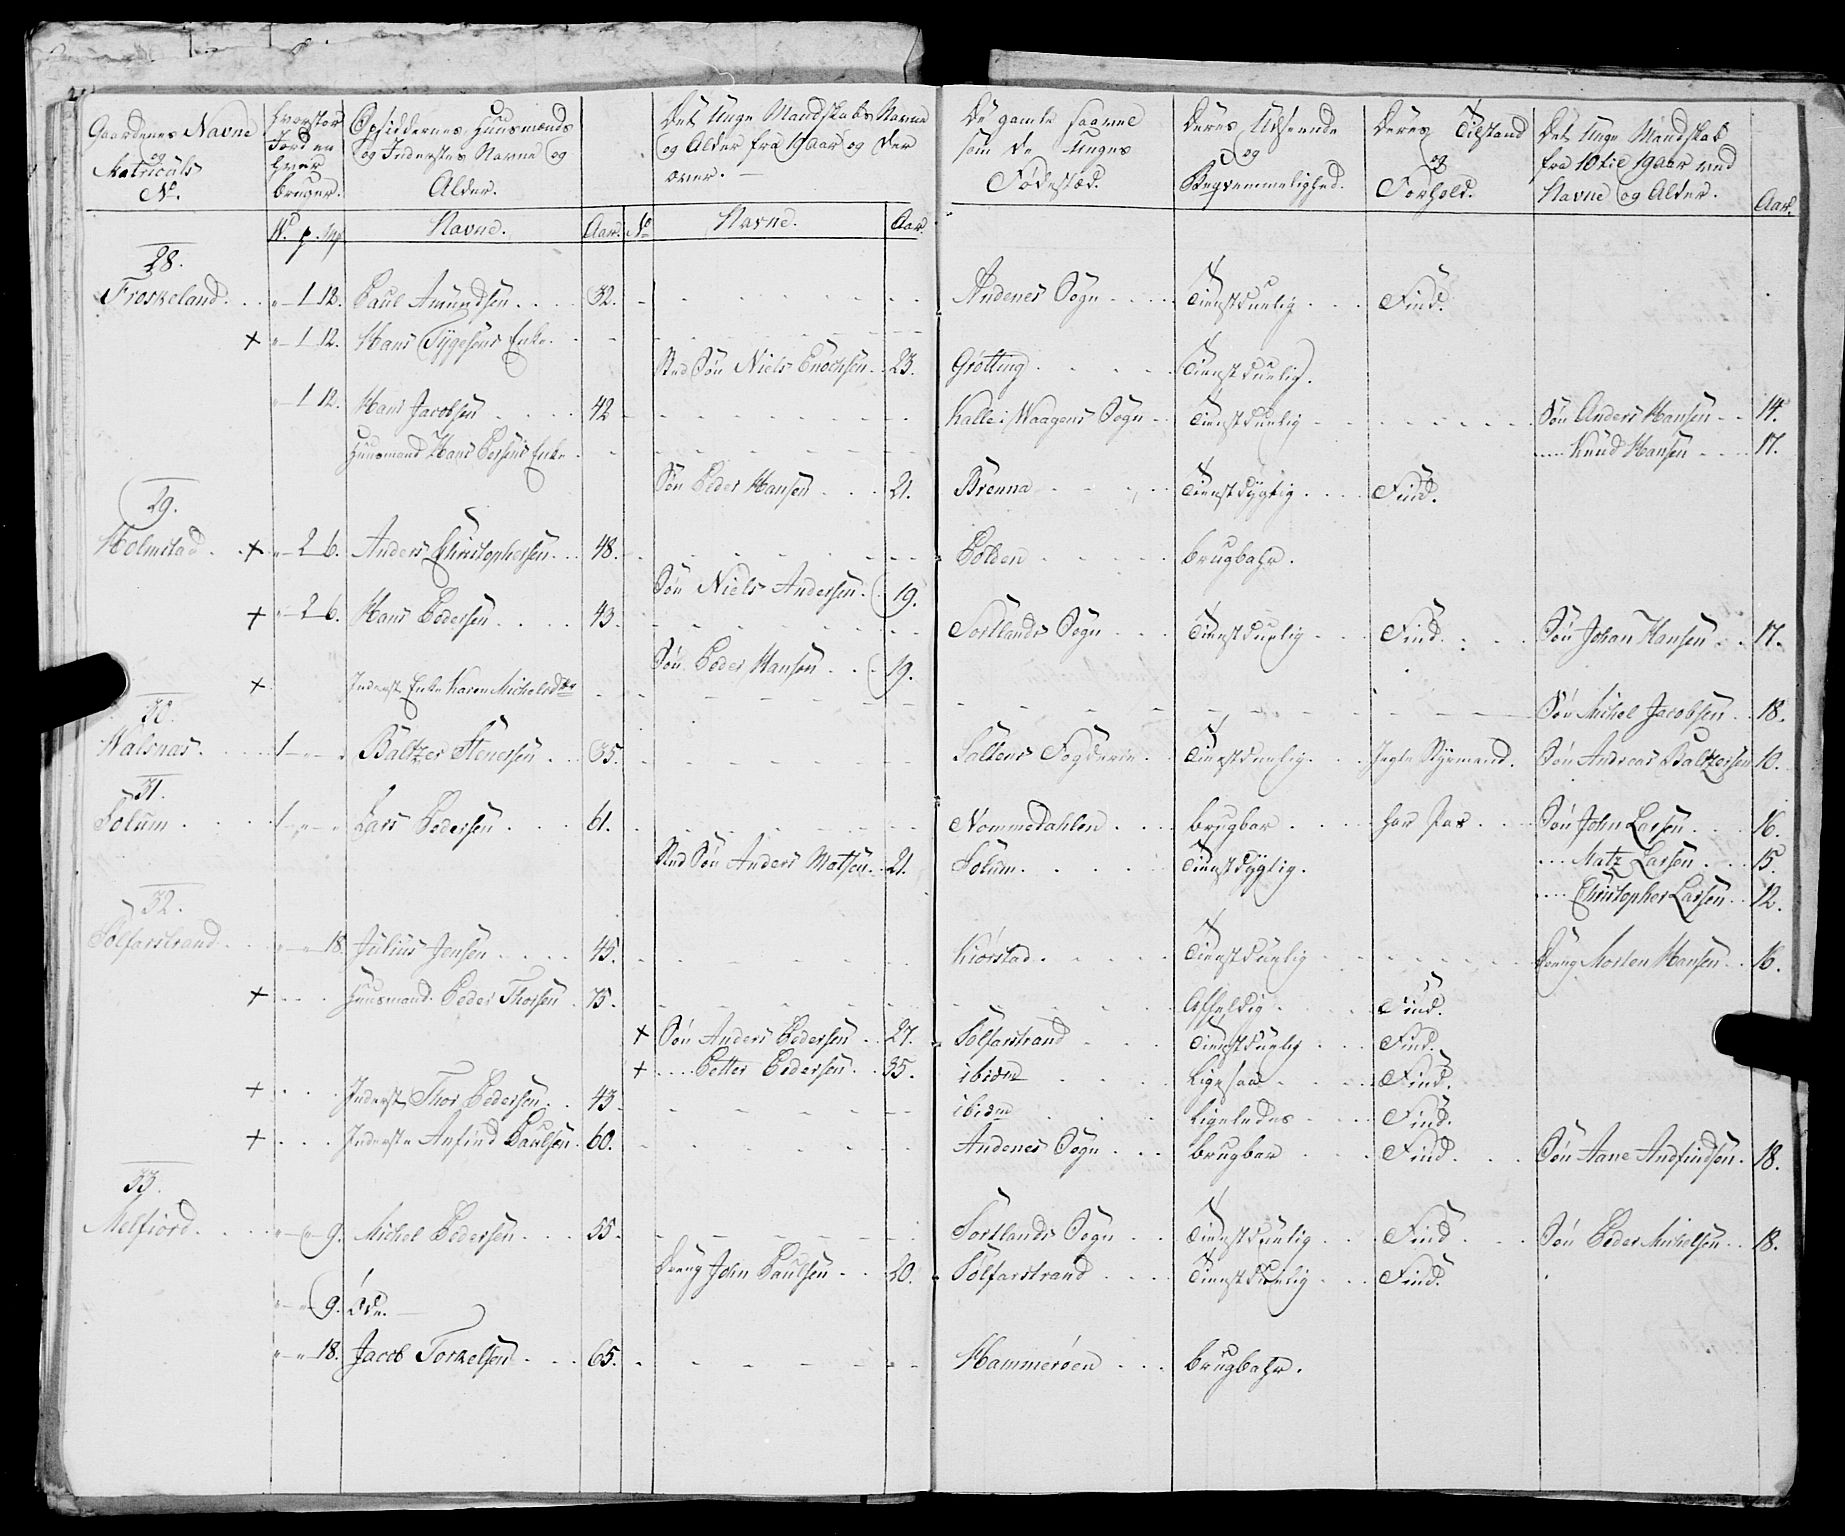 Gaardenes Navne og Matriculs No.
Hvor stor Jord en hver bruger.
Opsiddernes, Huusmænds og Inderstes Navne og Alder.
Det Unge Mandskabs Navne og Alder fra 19 aar og der over. —
De gamle saavel som de Unges Fødestæd.
Deres Udseende og Beqvemmelighed.
Deres Tilstand og Forhold.
Det Unge Mandskab fra 10 til 19 aar med Navne og Alder.
Aar.
W. p. Mk Navne. Aar. No Navne. Aar.
28.
Froskeland. „ — 1 12. Paul Amundsen 32. Andenes Sogn Tienstduelig Find.
+ „ — 1 12. Hans Tygesens Enke
Sted Søn Niels Enochsen 23. Grøtting Tienstduelig.
„ — 1 12. Hans Jacobsen 42 Kalle i Waagens Sogn Tienstduelig Søn Anders Hansen 14.
Huusmand Hans Persens Enke Knud Hansen 17.
Søn Peder Hansen 21. Brenna Tienstdygtig Find.
29.
Holmstad + „ — 2 6. Anders Christophersen 48. Polden brugbahr.
Søn Niels Andersen 19.
+ „ — 2 6. Hans Pedersen 43. Sortlands Sogn Tienstduelig Find Søn Johan Hansen 17.
Søn Peder Hansen 19.
+ Inderst Enke Karen Michelsdtr Søn Michel Jacobsen 18.
30.
Walsnas 1 — „ — „ Baltzer Stenersen 35. Saltens Fogderie Tienstduelig Jegte Styrmand. Søn Andreas Baltzersen 10.
31.
Solum 1 — „ — „ Lars Pedersen 61. Nommedahlen brugbar har Pas Søn John Larsen 16.
Sted Søn Anders Matsen 21. Solum Tienstdygtig. Matz Larsen 15.
Christopher Larsen 12.
32.
Solfarstrand „ — „ 18. Julius Jensen 45. Kiørstad Tienstduelig Dreng Morten Hansen 16.
+ Huusmand Peder Thorsen 75. Affeldig Find.
+ Søn Anders Pedersen 27. Solfarstrand Tienstduelig Find.
+ Petter Pedersen 35. ibidm Ligesaa Find.
+ Inderst Thor Pedersen 43 ibidm Ligeledes Find.
+ Inderste Anfind Paulsen 60. Andenes Sogn brugbar Find Søn Aane Andfindsen 18.
33.
Melfiord „ — „ 9. Michel Pedersen 55. Sortlands Sogn Tienstduelig Find Søn Peder Michelsen 18.
Dreng John Paulsen 20. Solfarstrand Tienstduelig Find.
„ — „ 9. Øde. —
„ — „ 18. Jacob Torkelsen 65. Hammerøen brugbahr.